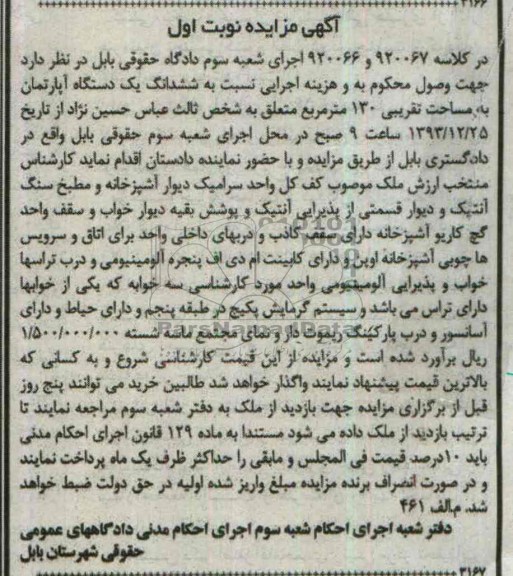 ۳۱۶۶
آگهی مزایده نوبت اول
در کلاسه ۹۲۰۰۶۷ و ۹۲۰۰۶۶ اجرای شعبه سوم دادگاه حقوقی بابل در نظر دارد
جهت وصول محکوم به و هزینه اجرایی نسبت به ششدانگ یک دستگاه آپارتمان
به مساحت تقریبی ۱۳۰ مترمربع متعلق به شخص ثالث عباس حسین نژاد از تاریخ
۱۳۹۳/۱۲/۲۵ ساعت ۹ صبح در محل اجرای شعبه سوم حقوقی بابل واقع در
دادگستری بابل از طریق مزایده و با حضور نماینده دادستان اقدام نماید کارشناس
منتخب ارزش ملک موصوب کف کل واحد سرامیک دیوار آشپزخانه و مطبخ سنگ
آنتیک و دیوار قسمتی از پذیرایی آنتیک و پوشش بقیه دیوار خواب و سقف واحد
گچ کاریو آشپزخانه دارای سقف کاذب و دربهای داخلی واحد برای اتاق و سرویس
ها چوبی آشپزخانه اوپن و دارای کابینت ام دی اف پنجره آلومینیومی و درب تراسها
خواب و پذیرایی آلومینیومی واحد مورد کارشناسی سه خوابه که یکی از خوابها
دارای تراس می باشد و سیستم گرمایش پکیج در طبقه پنجم و دارای حیاط و دارای
آسانسور و درب پارکینگ ریموت دار و نمای مجتمع ماسه شسته ۱/۵۰۰/۰۰۰/۰۰۰
ریال برآورد شده است و مزایده از این قیمت کارشناسی شروع و به کسانی که
بالاترین قیمت پیشنهاد نمایند واگذار خواهد شد طالبین خرید می توانند پنج روز
قبل از برگزاری مزایده جهت بازدید از ملک به دفتر شعبه سوم مراجعه نمایند تا
ترتیب بازدید از ملک داده می شود مستندا به ماده ۱۲۹ قانون اجرای احکام مدنی
باید ۱۰درصد قیمت فی المجلس و مابقی را حداکثر ظرف یک ماه پرداخت نمایند
و در صورت انصراف برنده مزایده مبلغ واریز شده اولیه در حق دولت ضبط خواهد
شد. م.الف ۴۶۱
دفتر شعبه اجرای احکام شعبه سوم اجرای احکام مدنی دادگاههای عمومی
حقوقی شهرستان بابل
۳۱۶۷
ParsNamadData